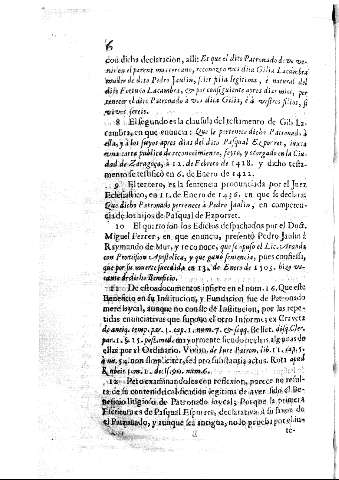 6
con dicha declaracion, alli: Es que el dito Patronado de ve ve-
nir en el parent mas cercano, reconozgo a vos dita Gilia Lacambra
muller de dito Pedro Jaulin, filla legitima, è natural del
dito Fertuco Lacambra, è por consiguiente apres dius mios, per-
tenecer el dito Patronado à vos dita Gilia, è à vestros fillos, si
vivos sereis.
8 El segundo es la clausula del testamento de Gil La-
cambra, en que enuncia: Que la pertenece dicho Patronado à
ella, y à los suyos apres dias del dito Pasqual Ezporret, iuxta
una carta publica de reconocimiento, feyto, y otorgado en la Ciu-
dad de Zaragoça, à 12. de Febrero de 1418. y dicho testa-
mento se testificò en 6. de Enero de 1422.
9 El tercero, es la sentencia pronunciada por el Juez
Eclesiastico, en 15. de Enero de 1436. en que se declara:
Que dicho Patronado pertenece à Pedro Jaulin, en competen-
cia de los hijos de Pasqual de Ezporret.
10 El quarto son los Edictos despachados por el Doct.
Miguel Ferrer, en que enuncia, presentò Pedro Jaulin à
Raymundo de Mur, y reconoce, que se opuso el Lic. Aranda
con Provision Apostolica, y que ganò sentencia, pues confiessa,
que por su muerte sucedida en 13. de Enero de 1503. hizo va-
cante de dicho Beneficio.
11 De estos documentos infiere en el num. 16. Que este
Beneficio en su Institucion, y Fundacion fue de Patronado
mere laycal, aunque no conste de Institucion, por las repe-
tidas enunciativas que supone el otro Informe; ex Craveta
de antiq. temp. par. 1. cap. 1. num. 7. & seqq. Bellet. disq. Cler.
par. 1. §. 15. post med. mayormente siendo hechas algunas de
ellas por el Ordinario. Vivian. de Jure Patron. lib. 11. cap. 5.
num. 54. non simpliciter, sed pro substantia actus. Rota apud
Rubeis tom. 1. decis. 90. num. 6.
12 Pero examinandoles con reflexion, parece no resul-
ta de su contenido calificacion legitima de aver sido el Be-
neficio litigioso de Patronado laycal; Porque la primera
Escritura es de Pasqual Esporret, declarativa à su favor de
el Patronado, y aunque sea antigua, no lo prueba por el in-
te-